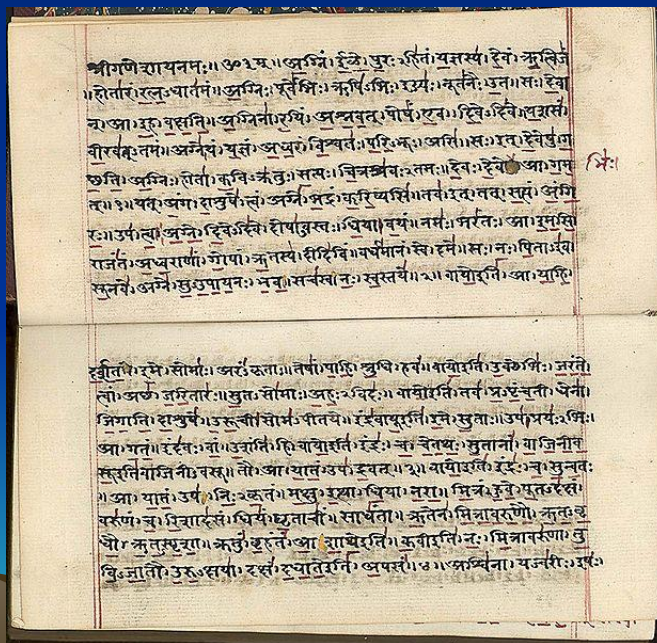 श्रीगणेशायनमः॥ॐ३म्॥अग्निं।ईळे।पुरःऽहितं।यज्ञस्य।देवं।ऋत्विजं
॥होतारं।रत्नऽधातमं॥अग्निः।पूर्वेभिः।ऋषिऽभिः।ईड्यः।नूतनैः।उत॥सः।देवा
न्।आ।इह।वक्षति॥अग्निना।रयिं।अश्नवत्।पोषं।एव।दिवेऽदिवे॥यशसं।
वीरवत्ऽतमं॥अग्ने।यं।यज्ञं।अध्वरं।विश्वतः।परिऽभूः।असि॥सः।इत्।देवेषु।ग
च्छति॥अग्निः।होता।कविऽक्रतुः।सत्यः।चित्रश्रवःऽतमः॥देवः।देवे आ।गम भिः।
त्॥१॥यत्।अंग।दाशुषे।त्वं।अग्ने।भद्रं।करिष्यसि॥तव।इत्।तत्।सत्यं।अंगि
रः॥उप।त्वा।अग्ने।दिवेऽदिवे।दोषाऽवस्तः।धिया।वयं॥नमः।भरंतः।आ।इमसि
राजंतं।अध्वराणां।गोपां।ऋतस्य।दीदिविं॥वर्धमानं।स्वे।दमे॥सः।नः।पिताऽइव
सूनवे।अग्ने।सुऽउपायनः।भव॥सचस्व।नः।स्वस्तये॥२॥वायोइति।आ।याहि।
दर्शत।इमे।सोमाः।अरंऽकृताः॥तेषां।पाहि।श्रुधि।हवं॥वायोइति।उक्थेभिः।जरंते
त्वां।अच्छ।जरितारः॥सुतऽसोमाः।अहःऽविदः॥वायोइति।तव।प्रऽपृंचती।धेना
जिगाति।दाशुषे॥उरूची।सोमऽपीतये॥इंद्रवायूइति।इमे।सुताः॥उप।प्रयःऽभिः।
आ।गतं॥इंदवः।वां।उशंति।हि॥वायोइति।इंद्रः।च।चेतथः।सुतानां।वाजिनीव
सूइतिवाजिनीवसू॥तौ।आ।यातं।उप।द्रवत्॥३॥वायोइति।इंद्रः।च।सुन्वतः
॥आ।यातं।उप।निःऽकृतं॥मक्षु।इत्था।धिया।नरा॥मित्रं।हुवे।पूतऽदक्षं
वरुणं।च।रिशादसं॥धियं।घृताचीं।साधंता॥ऋतेन।मित्रावरुणौ।ऋतऽवृ
धौ।ऋतऽस्पृशा॥क्रतुं।बृहंतं।आशाथेइति॥कवीइति।नः।मित्रावरुणा।तु
विऽजातौ।उरुऽक्षया॥दक्षं।दधातेइति।अपसं॥४॥अश्विना।यज्वरीः।इषः।